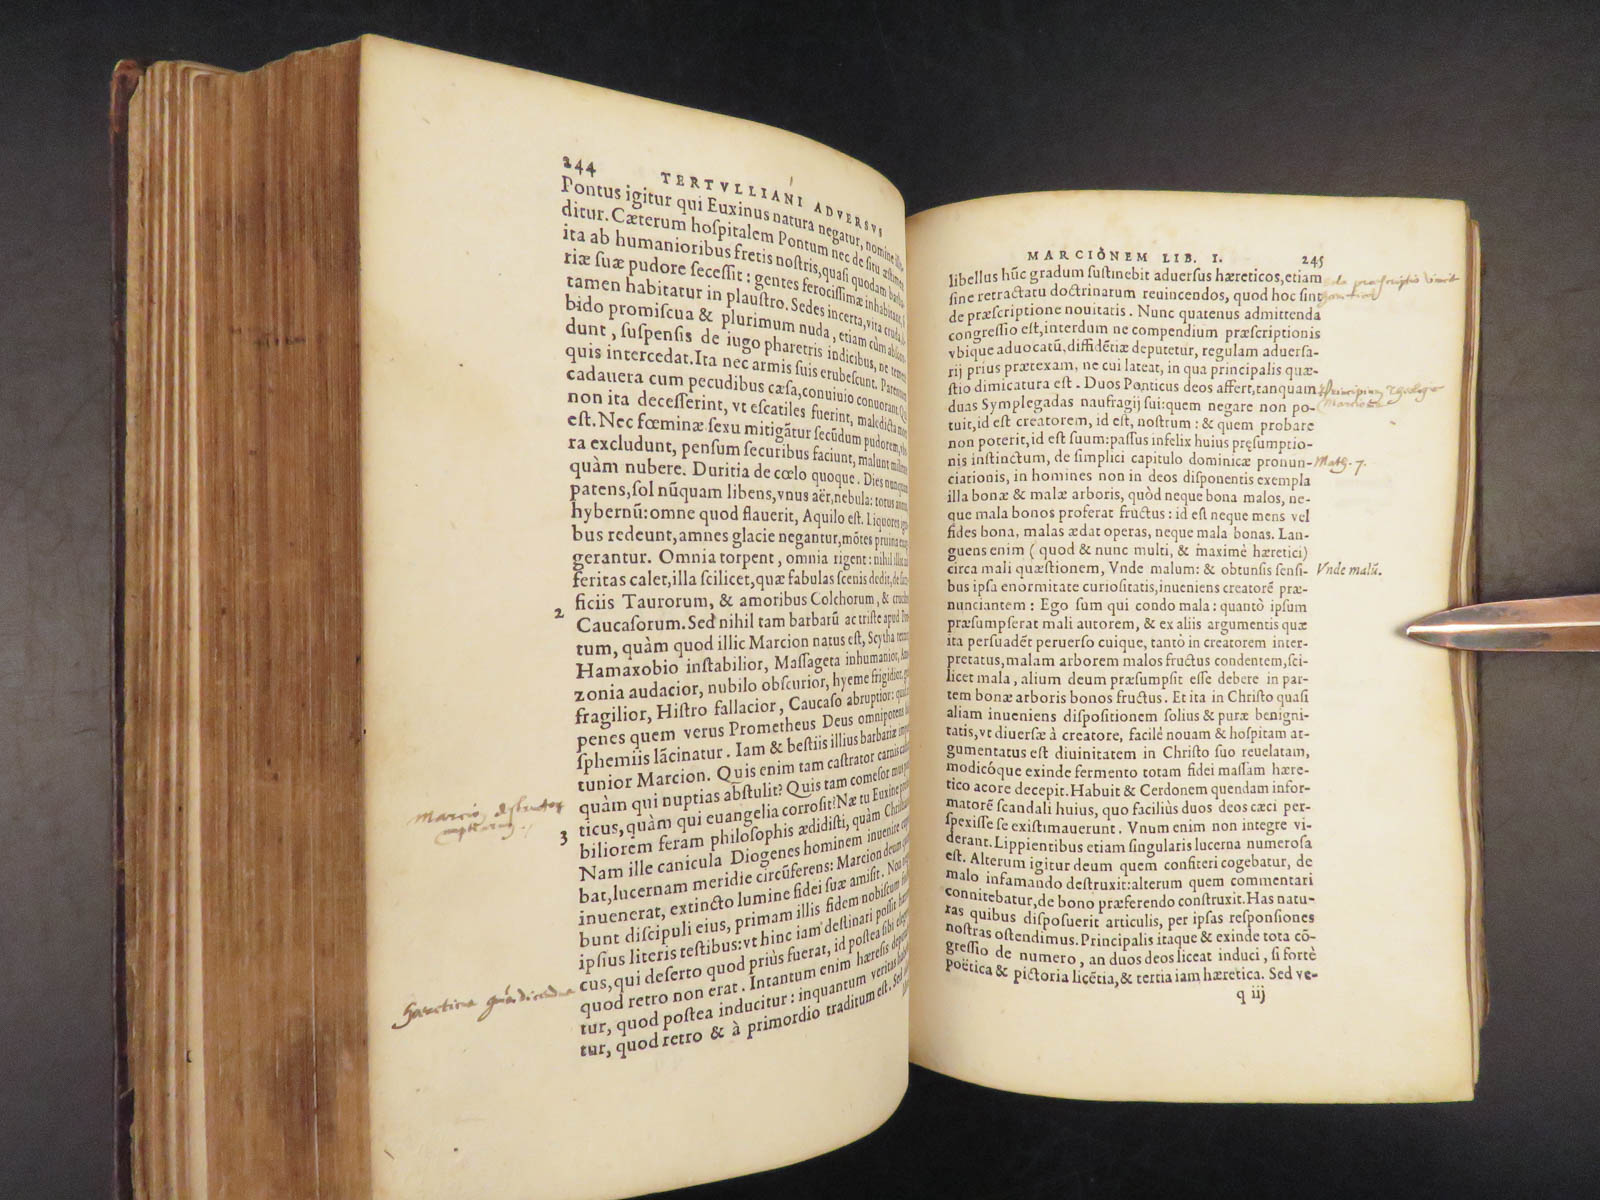 244 TERTVLLIANI ADVERSVS
Pontus igitur qui Euxinus natura negatur, nomine
ditur. Cæterum hoſpitalem Pontum nec de ſitu æſtimes
ita ab humanioribus fretis noſtris, quaſi quodam barba-
riæ ſuæ pudore ſeceſſit: gentes ferociſſimæ inhabitant,
tamen habitatur in plauſtro. Sedes incerta, vita cruda,
bido promiſcua & plurimum nuda, etiam cùm abſcon-
dunt, ſuſpenſis de iugo pharetris indicibus, ne temerè
quis intercedat. Ita nec armis ſuis erubeſcunt. Parentum
cadauera cum pecudibus cæſa, conuiuio conuorant. Qui
non ita deceſſerint, vt eſcatiles fuerint, maledicta mors
eſt. Nec fœminæ ſexu mitigãtur ſecũdum pudorem,
ra excludunt, penſum ſecuribus faciunt, malunt militare
quàm nubere. Duritia de cœlo quoque. Dies nunquam
patens, ſol nũquam libens, vnus aër, nebula: totus annus
hybernũ: omne quod flauerit, Aquilo eſt. Liquores igni-
bus redeunt, amnes glacie negantur, mõtes pruina exag-
gerantur. Omnia torpent, omnia rigent: nihil illic niſi
feritas calet, illa ſcilicet, quæ fabulas ſcenis dedit, de ſacri-
ficiis Taurorum, & amoribus Colchorum, & crucibus
2 Caucaſorum. Sed nihil tam barbarũ ac triſte apud Pon-
tum, quàm quod illic Marcion natus eſt, Scytha tetrior,
Hamaxobio inſtabilior, Maſſageta inhumanior, Ama-
zonia audacior, nubilo obſcurior, hyeme frigidior,
fragilior, Hiſtro fallacior, Caucaſo abruptior:
penes quem verus Prometheus Deus omnipotens
ſphemiis lãcinatur. Iam & beſtiis illius barbariæ impor-
tunior Marcion. Quis enim tam caſtrator carnis caſtor
quàm qui nuptias abſtulit? Quis tam comeſor mus
3 ticus, quàm qui euangelia corroſit? Næ tu Euxine
biliorem feram philoſophis ædidiſti, quàm
Nam ille canicula Diogenes hominem inuenire
bat, lucernam meridie circũferens: Marcion deum
inuenerat, extincto lumine fidei ſuæ amiſit. Non
bunt diſcipuli eius, primam illis fidem nobiſcum
ipſius literis teſtibus: vt hinc iam deſtinari poſſit
cus, qui deſerto quod priùs fuerat, id poſtea ſibi
quod retro non erat. Intantum enim hæreſis
tur, quod poſtea inducitur: inquantum veritas
tur, quod retro & à primordio traditum eſt. Sed
MARCIONEM LIB. I. 245
libellus hũc gradum ſuſtinebit aduerſus hæreticos, etiam
ſine retractatu doctrinarum reuincendos, quod hoc ſint
de præſcriptione nouitatis. Nunc quatenus admittenda
congreſſio eſt, interdum ne compendium præſcriptionis
vbique aduocatũ, diffidẽtiæ deputetur, regulam aduerſa-
rij prius prætexam, ne cui lateat, in qua principalis quæ-
ſtio dimicatura eſt. Duos Ponticus deos affert, tanquam
duas Symplegadas naufragij ſui: quem negare non po-
tuit, id eſt creatorem, id eſt, noſtrum: & quem probare
non poterit, id eſt ſuum: paſſus infelix huius pręſumptio-
nis inſtinctum, de ſimplici capitulo dominicæ pronun-
Math. 7.
ciationis, in homines non in deos diſponentis exempla
illa bonæ & malæ arboris, quòd neque bona malos, ne-
que mala bonos proferat fructus: id eſt neque mens vel
fides bona, malas ædat operas, neque mala bonas. Lan-
guens enim (quod & nunc multi, & maximè hæretici)
circa mali quæſtionem, Vnde malum: & obtunſis ſenſi-
Vnde malũ.
bus ipſa enormitate curioſitatis, inueniens creatorẽ præ-
nunciantem: Ego ſum qui condo mala: quantò ipſum
præſumpſerat mali autorem, & ex aliis argumentis quæ
ita perſuadẽt peruerſo cuique, tantò in creatorem inter-
pretatus, malam arborem malos fructus condentem, ſci-
licet mala, alium deum præſumpſit eſſe debere in par-
tem bonæ arboris bonos fructus. Et ita in Chriſto quaſi
aliam inueniens diſpoſitionem ſolius & puræ benigni-
tatis, vt diuerſæ à creatore, facilè nouam & hoſpitam ar-
gumentatus eſt diuinitatem in Chriſto ſuo reuelatam,
modicóque exinde fermento totam fidei maſſam hære-
tico acore decepit. Habuit & Cerdonem quendam infor-
matorẽ ſcandali huius, quo faciliùs duos deos cæci per-
ſpexiſſe ſe exiſtimauerunt. Vnum enim non integre vi-
derant. Lippientibus etiam ſingularis lucerna numeroſa
eſt. Alterum igitur deum quem confiteri cogebatur, de
malo infamando deſtruxit: alterum quem commentari
connitebatur, de bono præferendo conſtruxit. Has natu-
ras quibus diſpoſuerit articulis, per ipſas reſponſiones
noſtras oſtendimus. Principalis itaque & exinde tota cõ-
greſſio de numero, an duos deos liceat induci, ſi fortè
poëtica & pictoria licẽtia, & tertia iam hæretica. Sed ve-
q iij